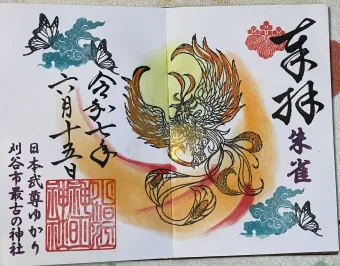 奉拝
朱雀
令和七年
六月十五日
日本武尊ゆかり
刈谷市最古の神社